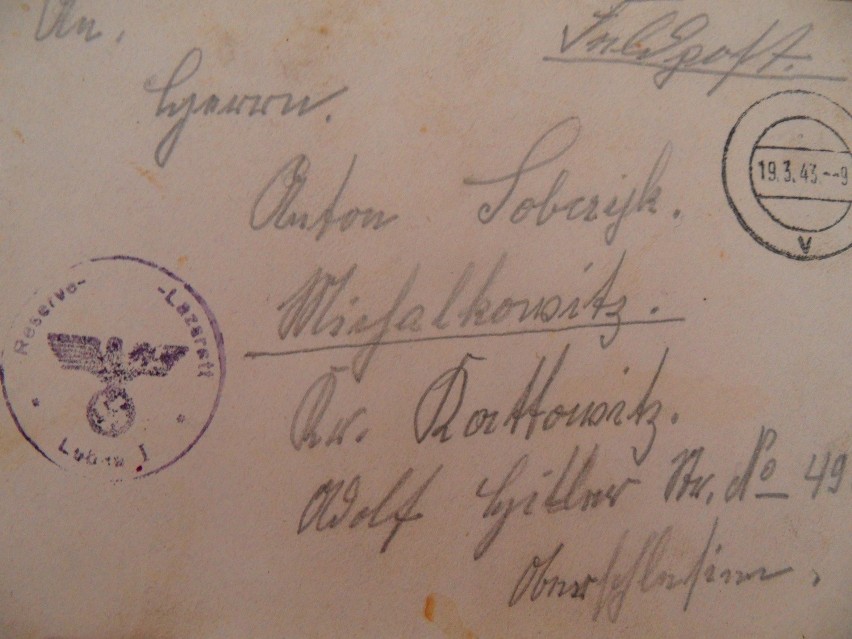 An.
Feldpost.
Herrn.
Anton Sobczyk.
19.3.43.--9
V
Michalkowitz.
Reserve- -Lazarett
I
Kr. Kattowitz.
Adolf Hitler Str. No 49
Oberschlesien.